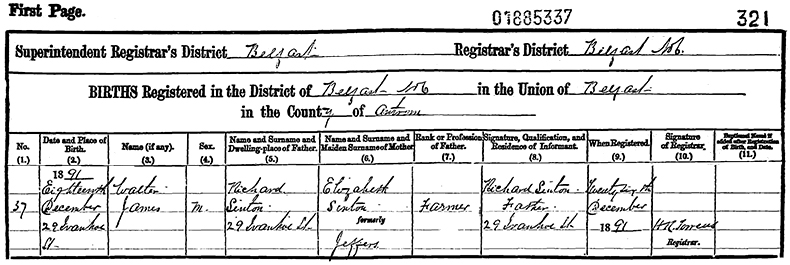 First Page.
01885337
321
Superintendent Registrar's District Belfast Registrar's District Belfast No 6.
BIRTHS Registered in the District of Belfast No 6 in the Union of Belfast
in the County of Antrim
No. (1.)
Date and Place of Birth. (2.)
Name (if any). (3.)
Sex. (4.)
Name and Surname and Dwelling-place of Father. (5.)
Name and Surname and Maiden Surname of Mother (6.)
Rank or Profession of Father. (7.)
Signature, Qualification, and Residence of Informant. (8.)
When Registered. (9.)
Signature of Registrar. (10.)
Baptismal Name, if added after Registration of Birth, and Date. (11.)
37
1891
Eighteenth
December
29 Ivanhoe
St.
Walter
James
M.
Richard
Sinton
29 Ivanhoe St.
Elizabeth
Sinton
formerly
Jeffers
Farmer
Richard Sinton
Father
29 Ivanhoe St
December
1891
Registrar.